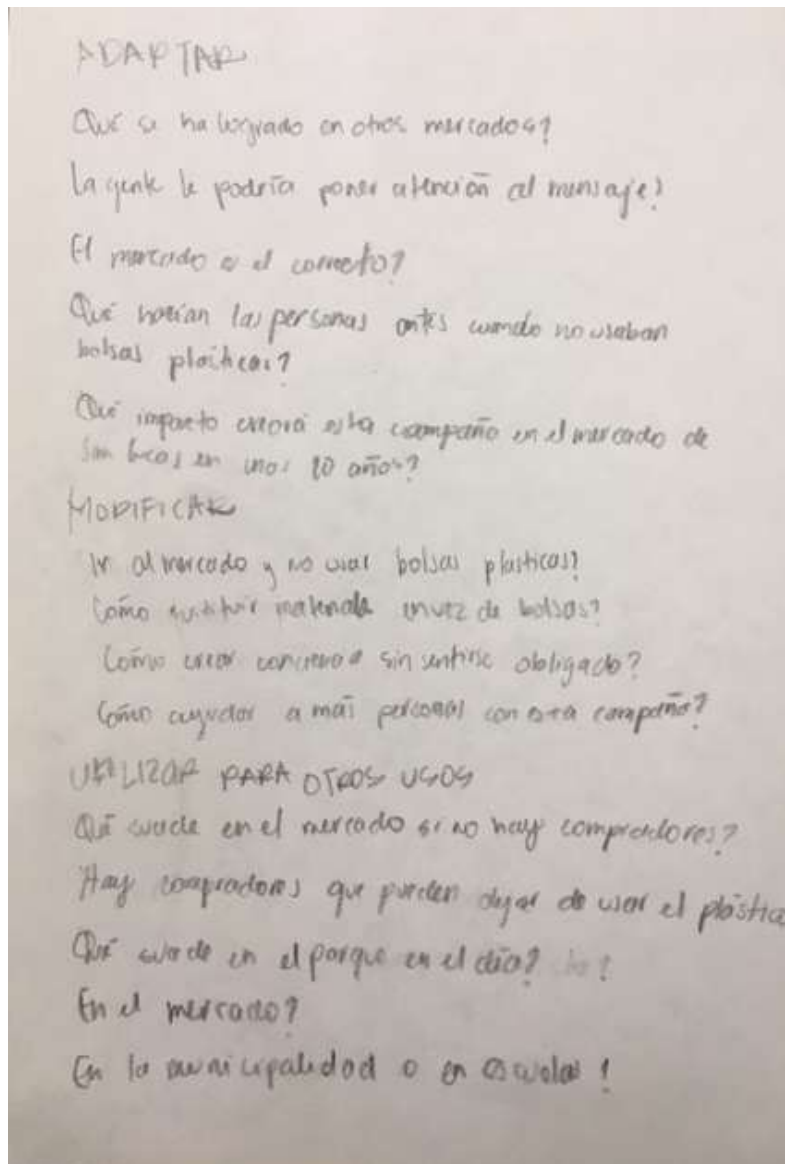 ADAPTAR
Qué se ha logrado en otros mercados?
La gente le podría poner atención al mensaje?
El mercado es el correcto?
Qué hacían las personas antes cuando no usaban
bolsas plásticas?
Qué impacto creará esta campaña en el mercado de
San Lucas en unos 10 años?
MODIFICAR
Ir al mercado y no usar bolsas plasticas?
Cómo sustituir materiales en vez de bolsas?
Cómo crear conciencia sin sentirse obligado?
Cómo ayudar a más personas con esta campaña?
UTILIZAR PARA OTROS USOS
Qué sucede en el mercado si no hay compradores?
Hay compradores que pueden dejar de usar el plástico
Qué sucede en el parque en el día?
En el mercado?
En la municipalidad o en escuelas?